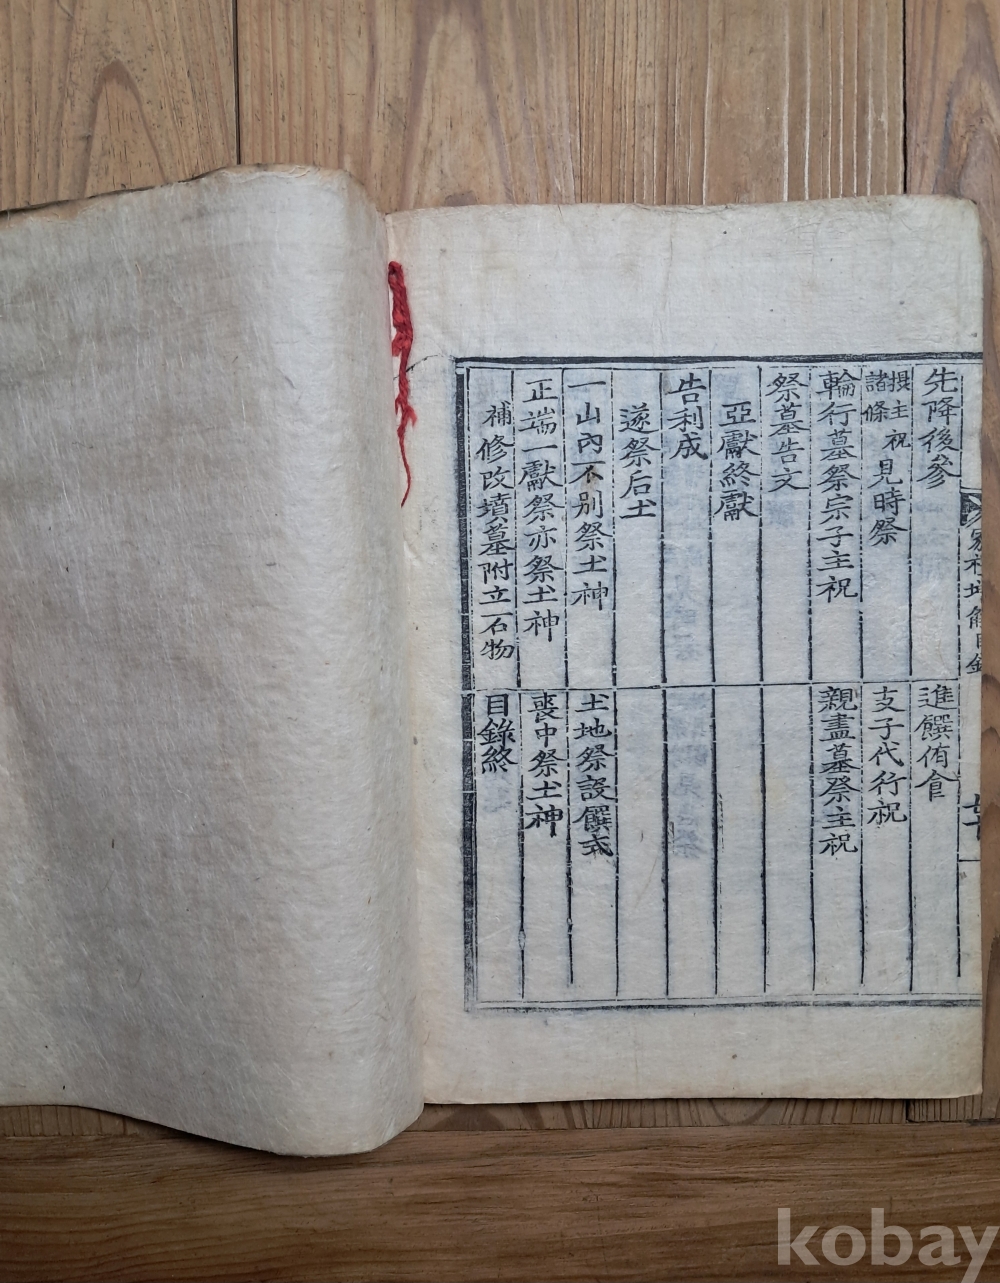 先降後參
進饌侑食
攝主祝見時祭
諸條
支子代行祝
輪行墓祭宗子主祝
親盡墓祭主祝
祭墓告文
亞獻終獻
告利成
遂祭后土
一山內不別祭土神
土地祭設饌式
正端一獻祭亦祭土神
喪中祭土神
補修改墳墓附立石物
目錄終
kobay